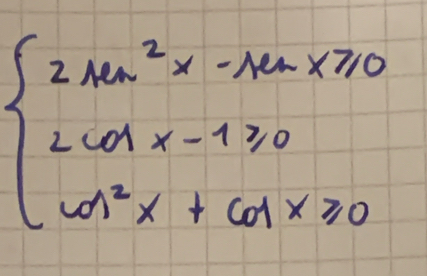 2 sen² x - sen x ≥ 0
2 cos x - 1 ≥ 0
cos² x + cos x ≥ 0